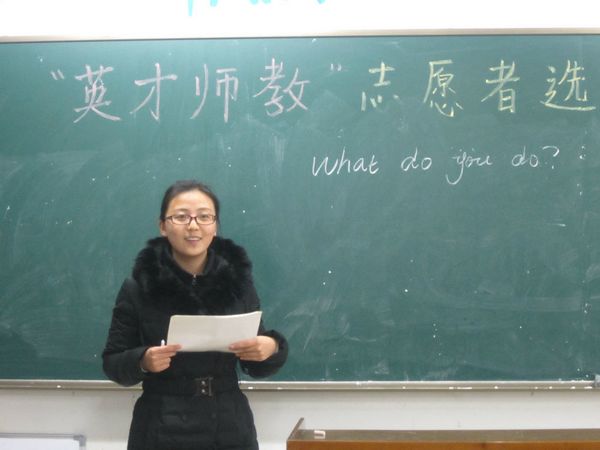 “英才师教”志愿者选
What do you do?